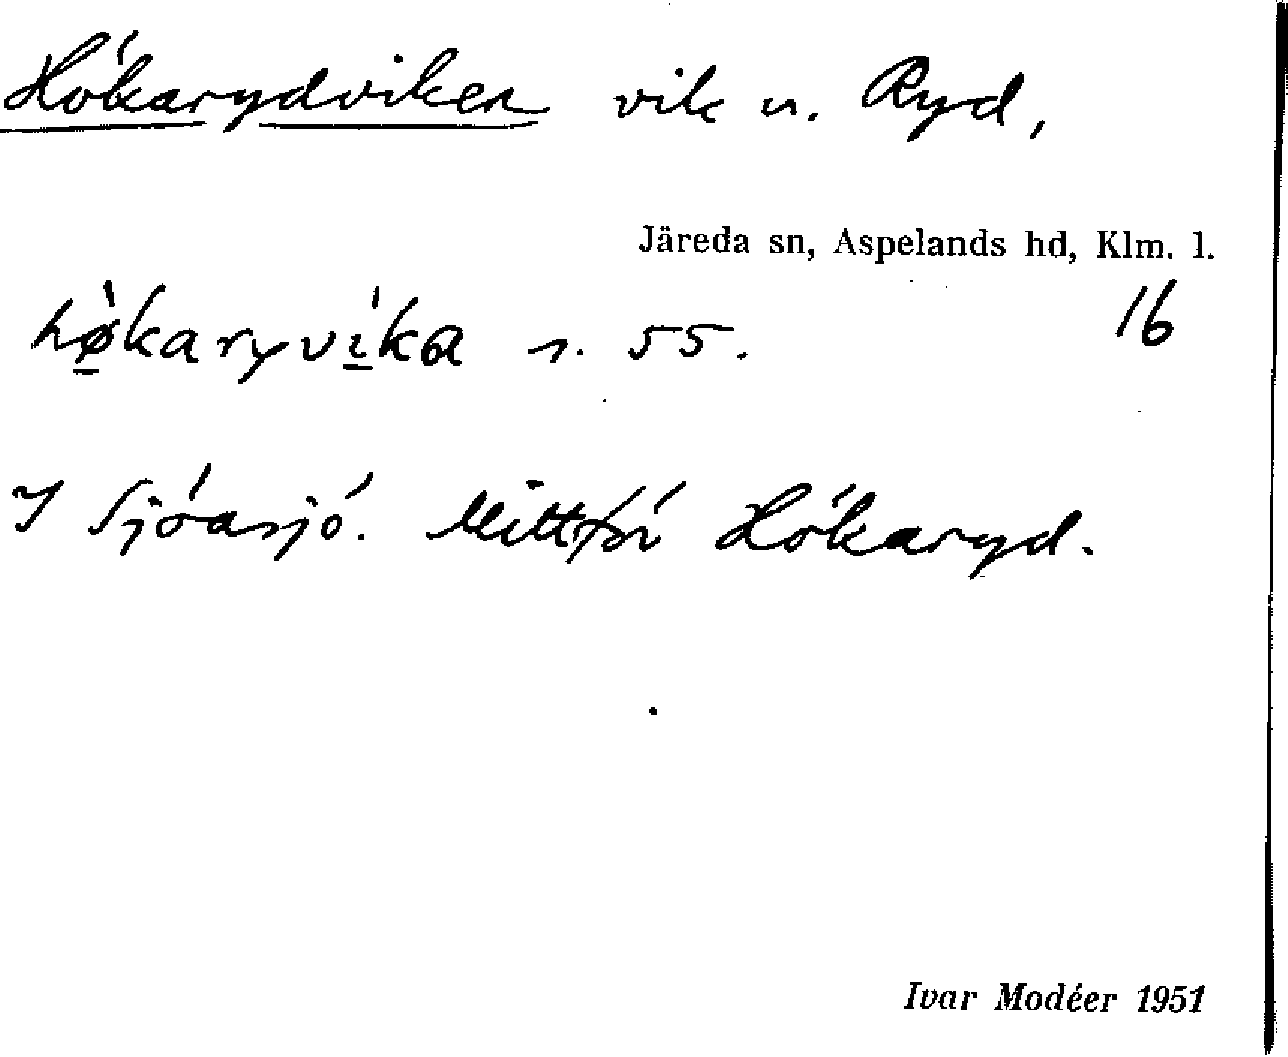 Hökarydviken vik u. Ryd,
Järeda sn, Aspelands hd, Klm. l.
hø̀karyvi̍ka s. 55. 16
I Sjöasjö. Mittför Hökaryd.
Ivar Modéer 1951